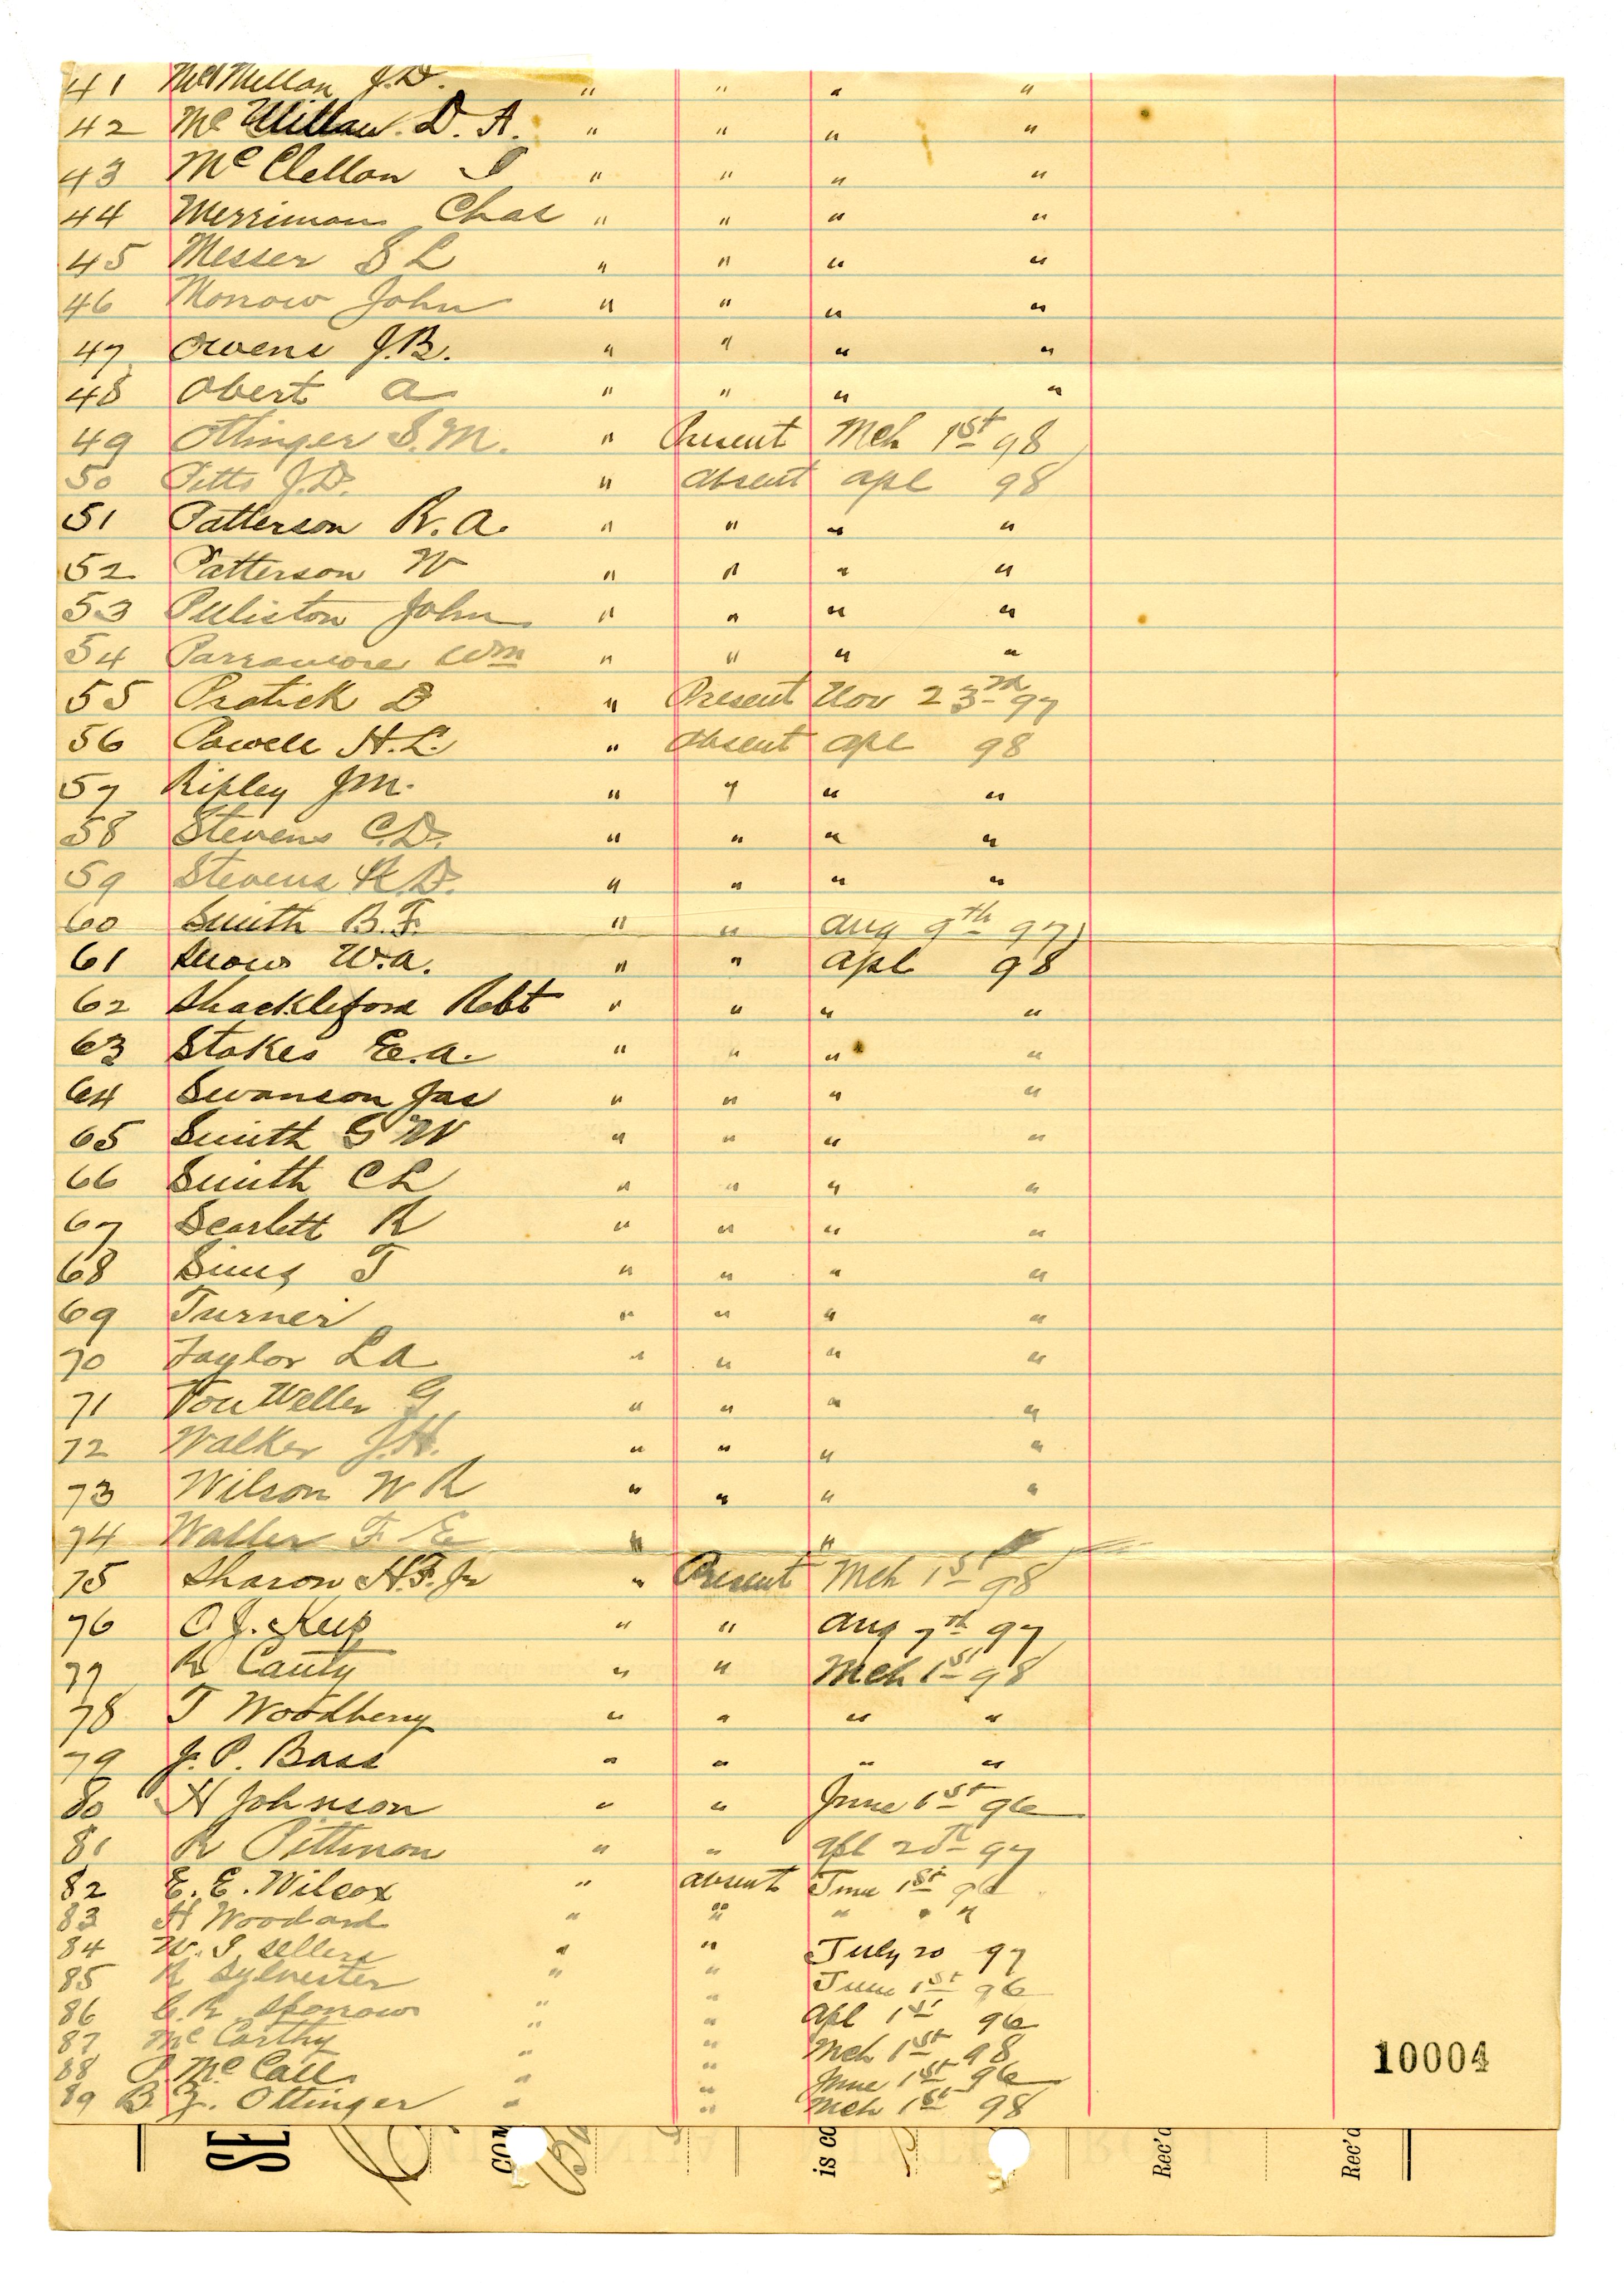 41 McMillan J.D. " " " "
42 Mc Millan. D. A. " " " "
43 Mc Clellan " " " "
44 Merriman Chas " " " "
45 Messer S L " " " "
46 Morrow John " " " "
47 Owens J.B. " " " "
48 Obert A " " " "
49 Ottinger S.M. " Present Mch 1st 98
50 Pitts J.D. " absent apl 98
51 Patterson R.A. " " " "
52 Patterson W " " " "
53 Pelliston John " " " "
54 Parramore Wm " " " "
55 Pratick D " Present Nov 23rd 97
56 Powell H.L. " absent apl 98
57 Ripley J M. " " " "
58 Stevens C.D. " " " "
59 Stevens R.D. " " " "
60 Smith B.F. " " aug 9th 97
61 Snow W.A. " " apl 98
62 Shackleford Robt " " " "
63 Stokes E.A. " " " "
64 Swanson Jas " " " "
65 Smith G W " " " "
66 Smith C L " " " "
67 Scarlett R " " " "
68 Sims T " " " "
69 Turner " " " "
70 Taylor L A " " " "
71 Von Weller G " " " "
72 Walker J.H. " " " "
73 Wilson W R " " " "
74 Waller F E " "
75 Sharon H.F. Jr " Present Mch 1st 98
76 O.J. Keep " " aug 7th 97
77 R Canty " " Mch 1st 98
78 T Woodberry " " " "
79 J. P. Bass " " " "
80 H Johnson " " June 1st 96
81 R Pittman " " apl 20th 97
82 E. E. Wilcox " absent June 1st 96
83 H Woodard " " " " "
84 W. S. Sellers " " July 20 97
85 R Sylvester " " June 1st 96
86 C.R. Sparrow " " apl 1st 96
87 Mc Carthy " " Mch 1st 98
88 P. Mc Call " " June 1st 96
89 B. Z. Ottinger " " Mch 1st 98
10004
SE
COM
is co
Rec'd
Rec'd